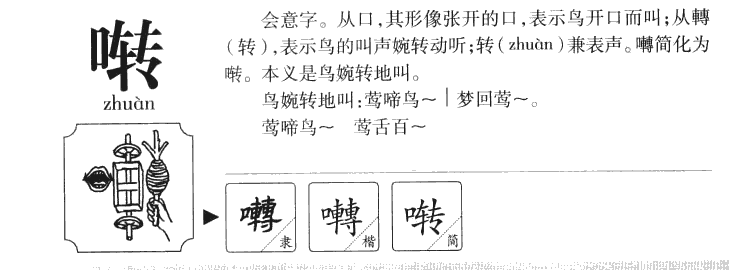 啭
zhuàn
会意字。从口,其形像张开的口,表示鸟开口而叫;从轉
(转),表示鸟的叫声婉转动听;转(zhuàn)兼表声。囀简化为
啭。本义是鸟婉转地叫。
鸟婉转地叫:莺啼鸟～｜梦回莺～。
莺啼鸟～ 莺舌百～
囀 隶
囀 楷
啭 简